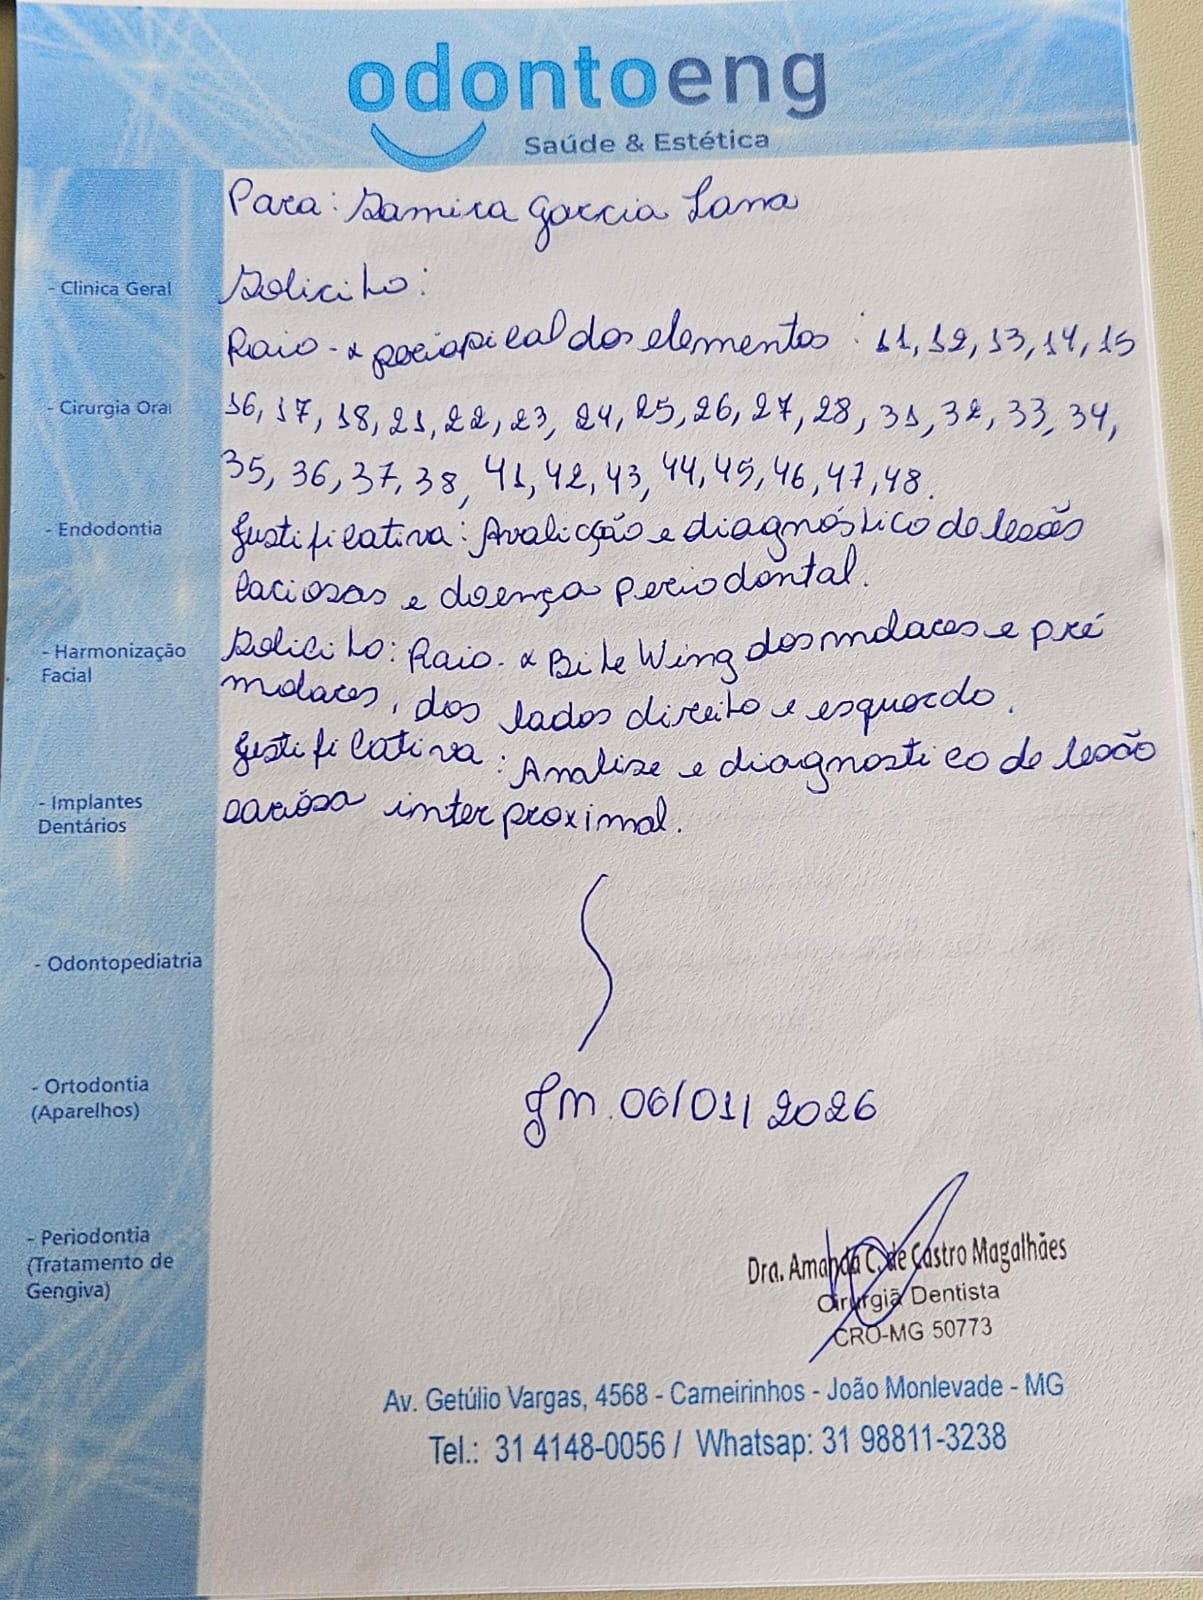 odontoeng
Saúde & Estética
Para: Samira Garcia Lana
Solicito:
Raio-x periapical dos elementos: 11, 12, 13, 14, 15
16, 17, 18, 21, 22, 23, 24, 25, 26, 27, 28, 31, 32, 33, 34,
35, 36, 37, 38, 41, 42, 43, 44, 45, 46, 47, 48.
Justificativa: Avalicção e diagnóstico de lesões
cariosas e doença periodontal.
Solicito: Raio-x Bite Wing dos molares e pré
molares, dos lados direito e esquerdo.
Justificativa: Analise e diagnostico de lesão
cariósa interproximal.
Jm. 06/01/2026
- Clinica Geral
- Cirurgia Oral
- Endodontia
- Harmonização
Facial
- Implantes
Dentários
- Odontopediatria
- Ortodontia
(Aparelhos)
- Periodontia
(Tratamento de
Gengiva)
Dra. Amanda C. de Castro Magalhães
Cirurgiã Dentista
CRO-MG 50773
Av. Getúlio Vargas, 4568 - Carneirinhos - João Monlevade - MG
Tel.: 31 4148-0056 / Whatsap: 31 98811-3238